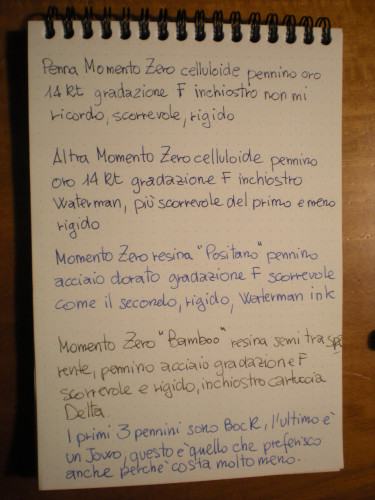 Penna Momento Zero celluloide pennino oro
14 kt gradazione F inchiostro non mi
ricordo, scorrevole, rigido
Altra Momento Zero celluloide pennino
oro 14 kt gradazione F inchiostro
Waterman, più scorrevole del primo e meno
rigido
Momento Zero resina "Positano" pennino
acciaio dorato gradazione F scorrevole
come il secondo, rigido, Waterman ink
Momento Zero "Bamboo" resina semi traspa
rente, pennino acciaio gradazione F
scorrevole e rigido, inchiostro cartuccia
Delta.
I primi 3 pennini sono Bock, l'ultimo è
un Jowo, questo è quello che preferisco
anche perchè costa molto meno.